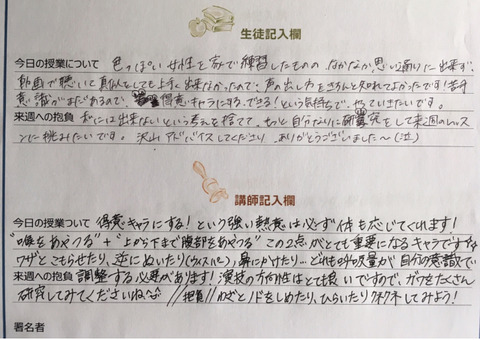 生徒記入欄
今日の授業について 色っぽい女性を家で練習したものの なかなか思い通りに出来ず、
動画で聴いて真似をしても上手く出来なかったので、声の出し方をきちんと知れてよかったです!苦手
意識がまだあるので、得意キャラにする、できる!という気持ちで、やっていきたいです。
来週への抱負 私には出来ないという考えを捨てて、もっと自分なりに研究をして来週のレッス
ンに挑みたいです。沢山アドバイスしてくださり ありがとうございました〜(泣)
講師記入欄
今日の授業について 得意キャラにする!という強い熱意は必ず体も応じてくれます!
"喉をあやつる"+"上から下まで腹部をあやつる" この2点がとても重要になるキャラですかな
ワザとこもらせたり、逆にぬいたり(ウィスパー)、鼻にかけたり…どれも呼吸量が自分の意識で
来週への抱負 調整する必要があります!演技の方向性はとても良いですので、ガヤをたくさん
研究してみてくださいね^^ //抱負// わざとノドをしめたり、ひらいたりクネクネしてみよう!
署名者